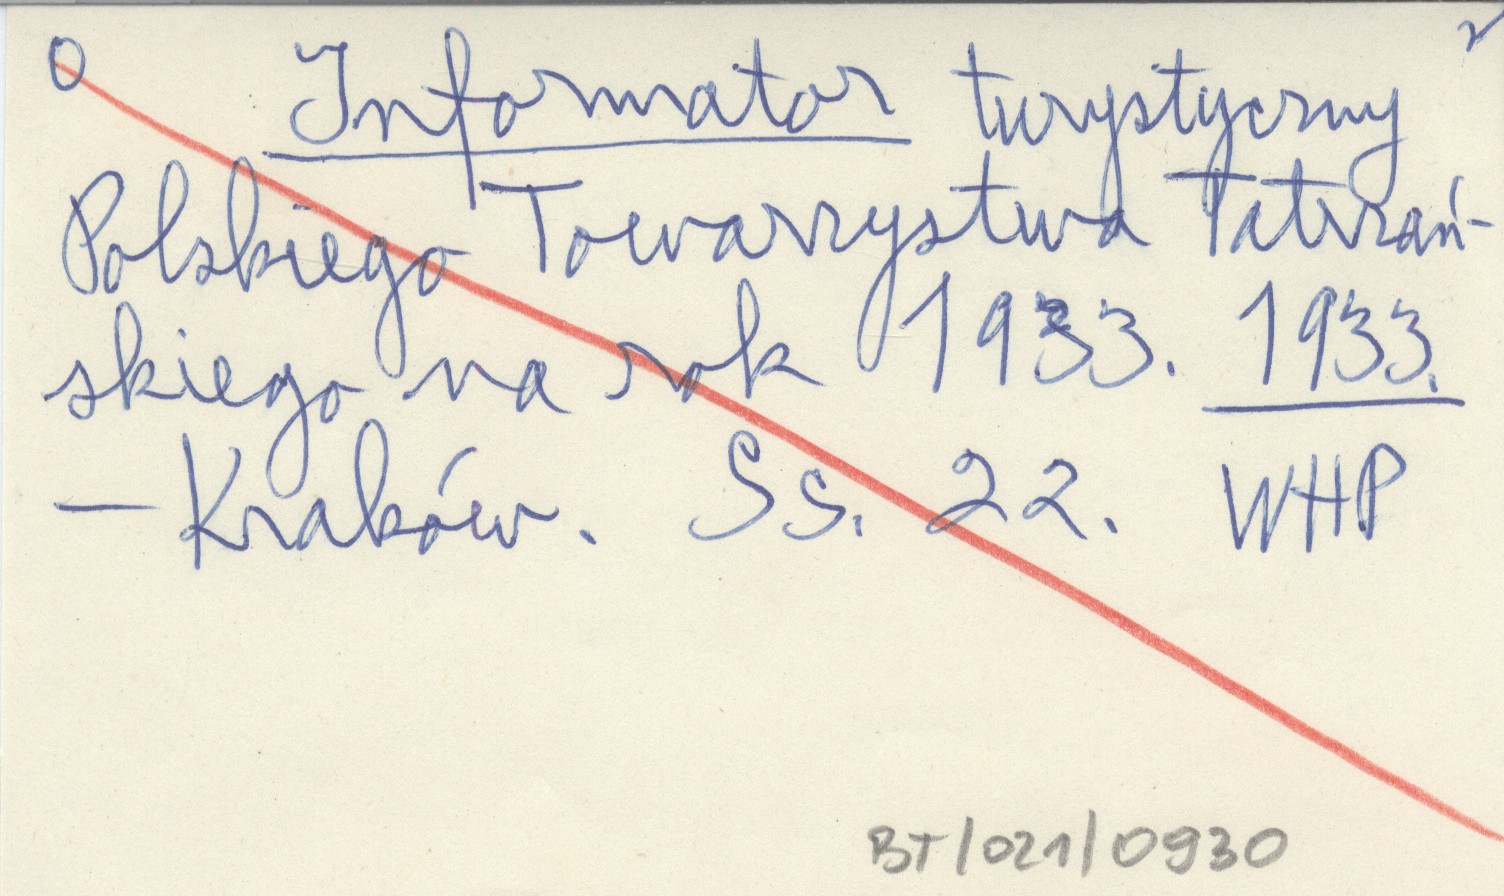 0 Informator turystyczny
Polskiego Towarzystwa Tatrzań-
skiego na rok 1933. 1933.
— Kraków. Ss. 22. WHP
BT/021/0930